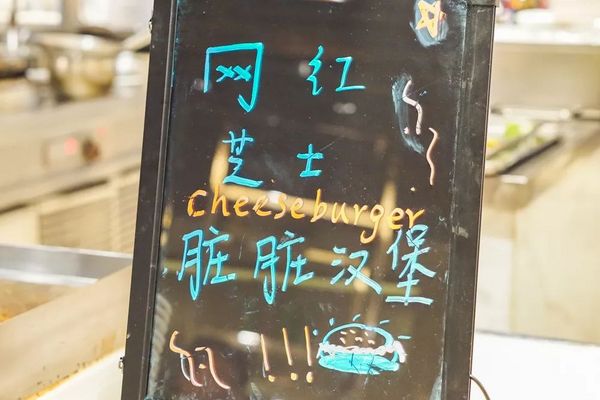 网红
芝士
cheeseburger
脏脏汉堡
!!!